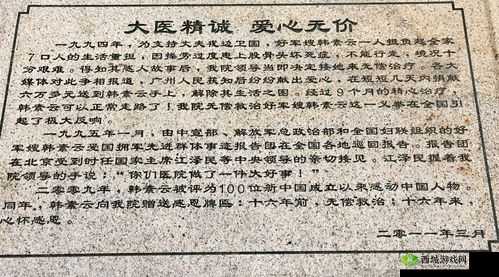 大医精诚 爱心无价
一九九四年，为支持丈夫戍边卫国，好军嫂韩素云一人担负起全家
7口人的生活重担，因劳劳过度患上股骨头坏死症，不能行走，境况十
分艰难。得知其感人故事后，我院领导当即决定接她来无偿治疗。各大
媒体对此争相报道，广州人民获知后纷纷献出爱心，在短短几天内捐献
六万多元送到韩素云手上，解除其生活之困。经过9个月的精心治疗，
韩素云可以正常走路了！我院无偿救治好军嫂韩素云这一义举在全国引
起了极大反响。
一九九五年一月，由中宣部、解放军总政治部和全国妇联组织的好
军嫂韩素云爱国拥军先进群体事迹报告团在全国各地巡回报告。报告团
在北京受到时任国家主席江泽民等中央领导的亲切接见。江泽民握着我
院领导的手说：“你们医院做了一件大好事！”
二零零九年，韩素云被评为100位新中国成立以来感动中国人物。
同年，韩素云向我院赠送感恩牌匾：十六年前，无偿救治；十六年来，
心怀感恩。
二零一一年三月
西城游戏网